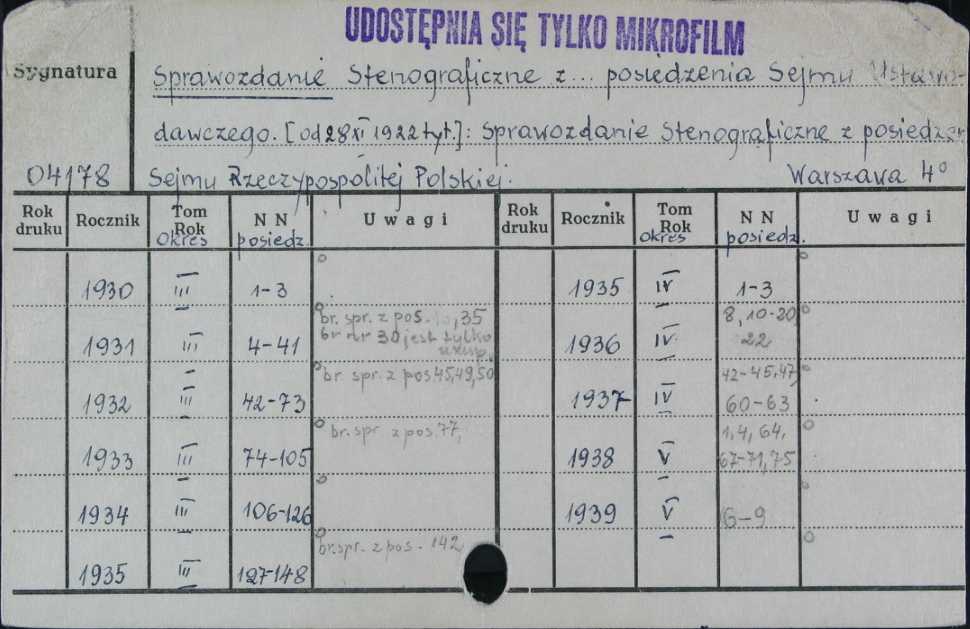 UDOSTĘPNIA SIĘ TYLKO MIKROFILM
Sygnatura
Sprawozdanie Stenograficzne z... posiedzenia Sejmu Ustawo-
dawczego. [od 28 XI 1922 tyt.]: Sprawozdanie Stenograficzne z posiedzeń
04178 Sejmu Rzeczypospolitej Polskiej. Warszawa 4°
Rok druku Rocznik Tom Rok Okres N N posiedz. Uwagi Rok druku Rocznik Tom Rok Okres N N posiedz. Uwagi
1930 III 1-3 1935 IV 1-3
1931 III 4-41 br. spr. z pos. 35 br nr 30 jest tylko 1936 IV 8, 10-20, 22
1932 III 42-73 br. spr. z pos 45, 49, 50 1937 IV 42-45, 47, 60-63
1933 III 74-105 br. spr. z pos. 77, 1938 V 1, 4, 64, 67-71, 75
1934 III 106-126 1939 V 6-9
1935 III 127-148 br. spr. z pos. 142